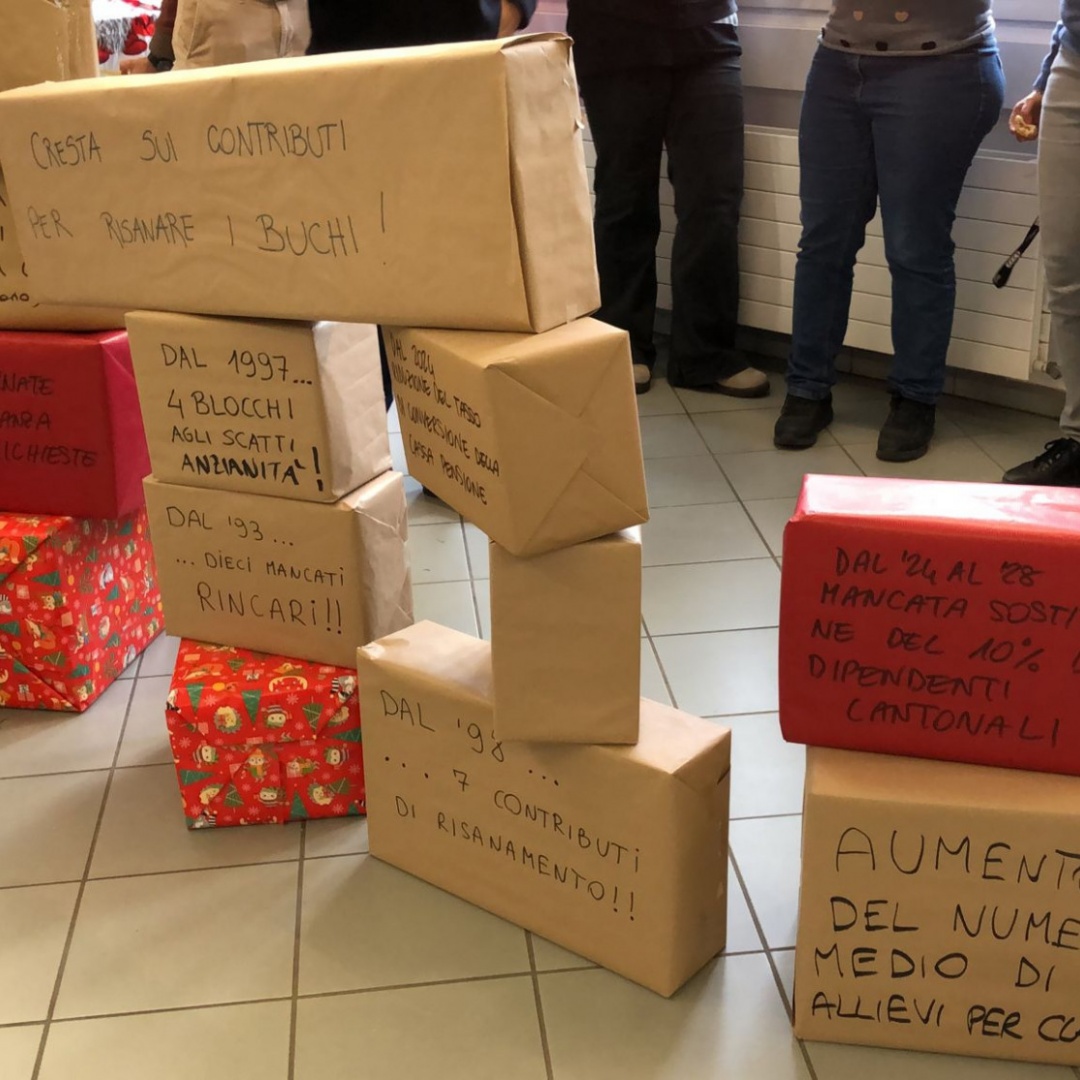 CRESTA SUI CONTRIBUTI
PER RISANARE I BUCHI!
NATE
ICHIESTE
DAL 1997...
4 BLOCCHI
AGLI SCATTI
ANZIANITÀ!
DAL 2024
DEL TASSO
CONVERSIONE DELLA
CASSA PENSIONE
DAL '93...
... DIECI MANCATI
RINCARI!!
DAL '98...
... 7 CONTRIBUTI
DI RISANAMENTO!!
DAL '24 AL '28
MANCATA SOSTI
NE DEL 10%
DIPENDENTI
CANTONALI
AUMENT
DEL NUME
MEDIO DI
ALLIEVI PER